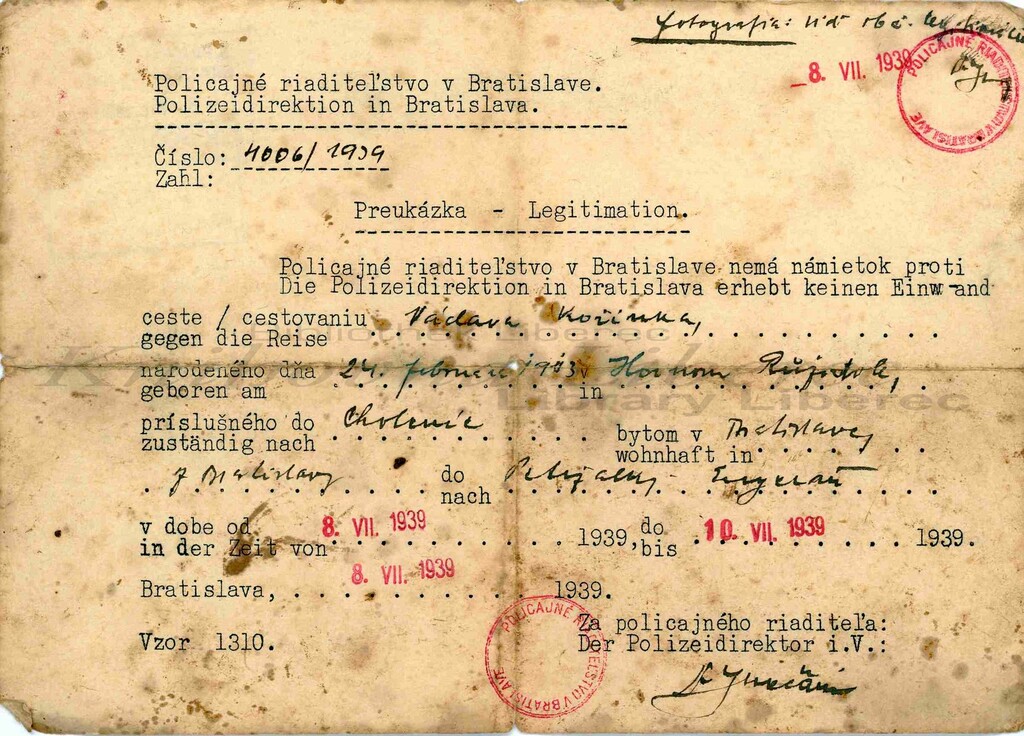 fotografia: vid obč. leg.
8. VII. 1939
POLICAJNÉ RIADITEĽSTVO V BRATISLAVE
Policajné riaditeľstvo v Bratislave.
Polizeidirektion in Bratislava.
Číslo: 4006/1939
Zahl:
Preukázka - Legitimation.
Policajné riaditeľstvo v Bratislave nemá námietok proti
Die Polizeidirektion in Bratislava erhebt keinen Einwand
ceste / cestovaniu Václava Kořínka,
gegen die Reise
Library Liberec
narodeného dňa 24. februára 1913 v Hornom Růžodole,
geboren am in
príslušného do Cholenic bytom v Bratislave,
zuständig nach wohnhaft in
z Bratislavy do Petržalky - Engerau
nach
v dobe od 8. VII. 1939 1939, do 10. VII. 1939 1939.
in der Zeit von bis
Bratislava, 8. VII. 1939 1939.
Za policajného riaditeľa:
Vzor 1310. Der Polizeidirektor i.V.:
POLICAJNÉ RIADITEĽSTVO V BRATISLAVE